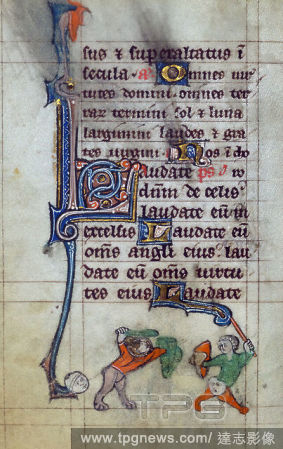 sus & superaltatus ī
secula · a͂ · Omnes uir
tutes domini · omnes ter
rar termini sol & luna
largiimini laudes & gra
tes uirgini · Nos
Laudate ps̄
dn̄m de celis
laudate eū in
excelsis Laudate eū
om̄s angli eius · lau
date eū om̄s uirtu
tes eius Laudate
TPG
www.tpgnews.com/ 達志影像